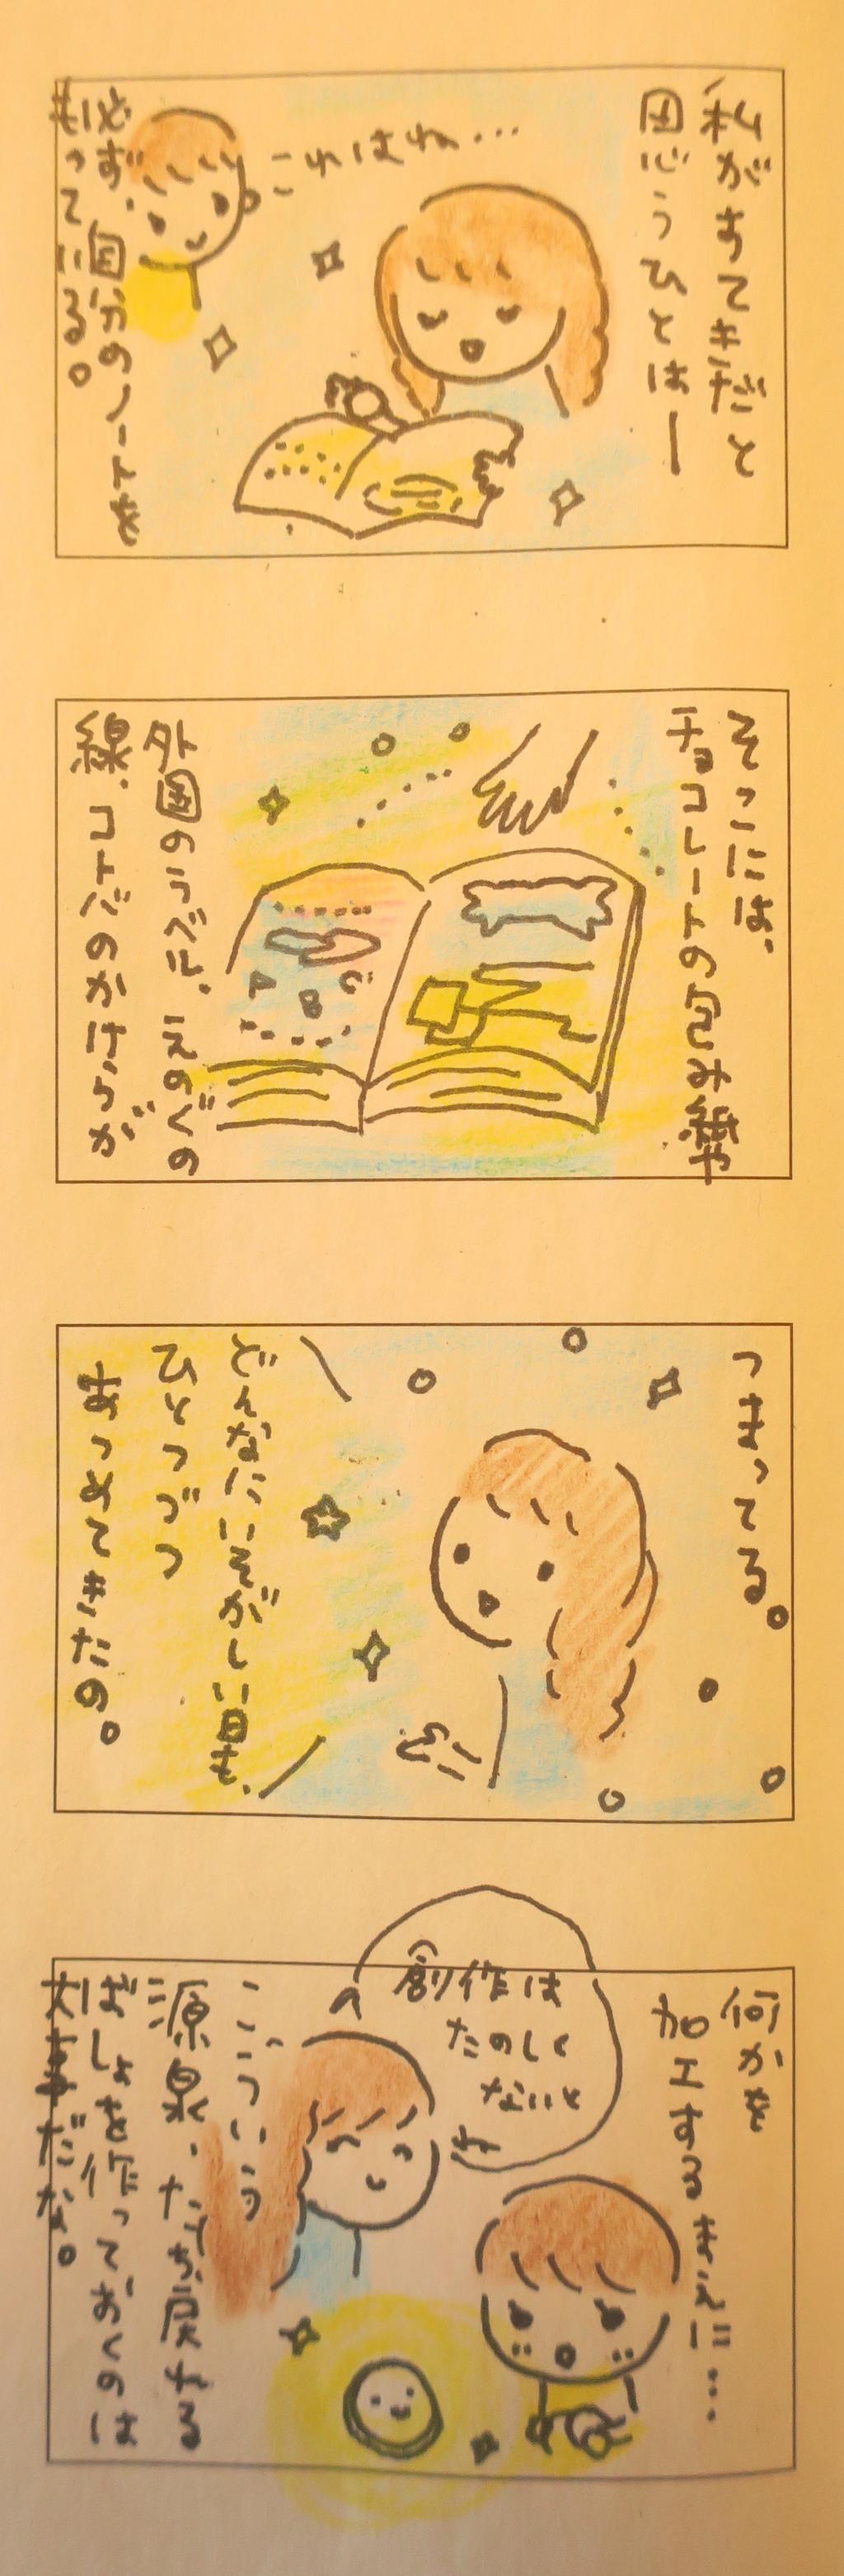 私がすてきだと
思うひとは―
これはね…
必ず、自分のノートを
もっている。
そこには、
チョコレートの包み紙や
外国のラベル、えのぐの
線、コトバのかけらが
つまってる。
どんなにいそがしい日も、
ひとつづつ
あつめてきたの。
何かを
加工するまえに…
創作は
たのしく
ないと
ね
こういう
源泉、たち戻れる
ばしょを作っておくのは
大事だな。